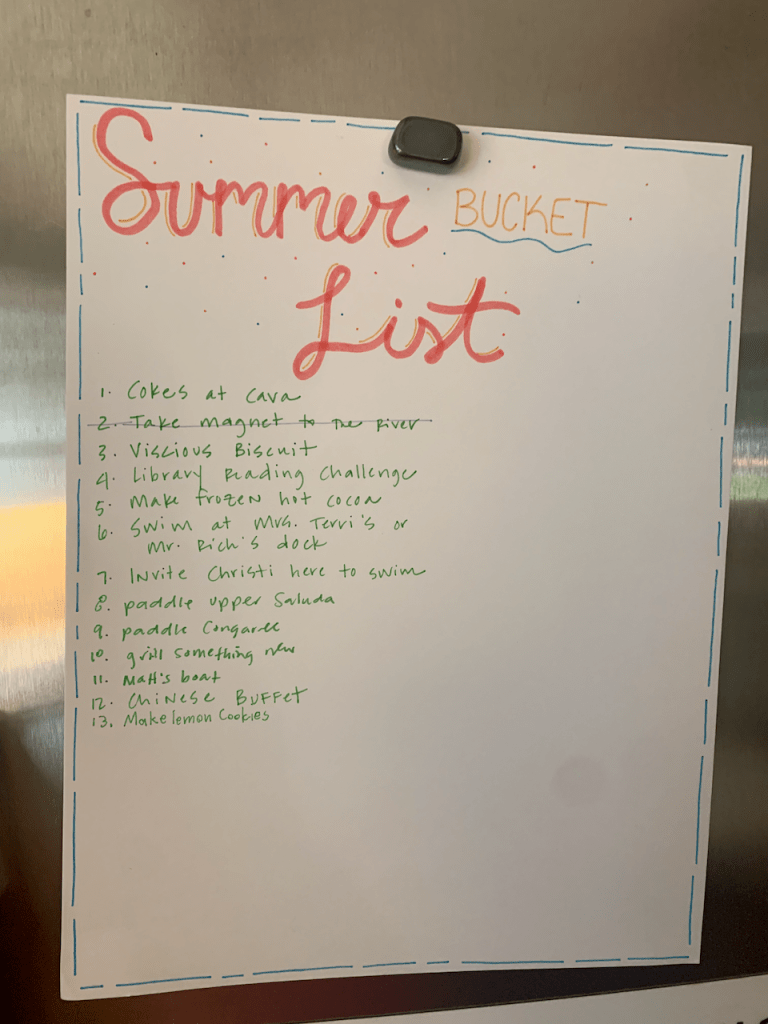 Summer BUCKET
List
1. Cokes at Cava
2. Take magnet to The River
3. Viscious Biscuit
4. Library Reading Challenge
5. Make frozen hot cocoa
6. Swim at Mrs. Terri's or
Mr. Rich's dock
7. Invite Christi here to swim
8. paddle upper Saluda
9. paddle Congaree
10. grill something new
11. Matt's boat
12. Chinese Buffet
13. Make lemon Cookies